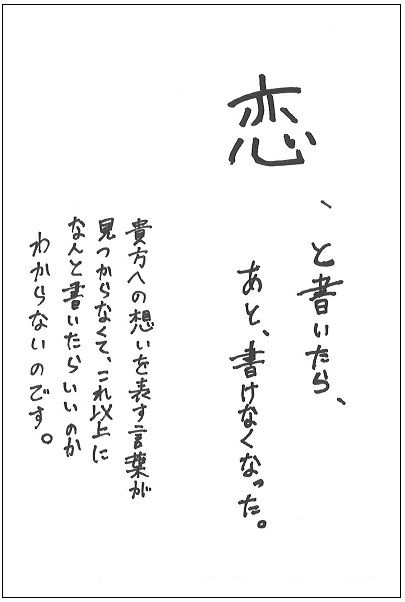 恋、と書いたら、
あと、書けなくなった。
貴方への想いを表す言葉が
見つからなくて、これ以上に
なんと書いたらいいのか
わからないのです。